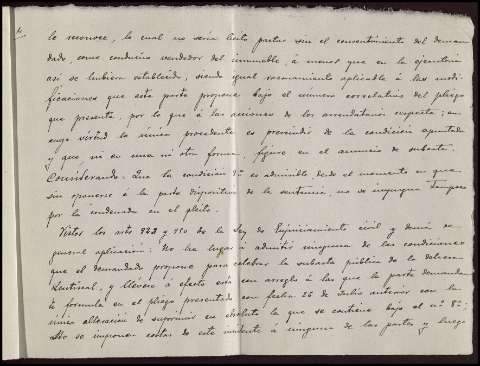 le reconoce, lo cual no sería lícito pactar sin el consentimiento del deman
dado, como condueño vendedor del inmueble, á menos que en la ejecutoria
así se hubiera establecido, siendo igual razonamiento aplicable á las modi
ficaciones que esta parte propone bajo el número correlativo del pliego
que presenta, por lo que á las acciones de los arrendatarios respecta; en
cuya virtud lo único procedente es prescindir de la condición apuntada
y que ni en una ni otra forma, figure en el anuncio de subasta.
Considerando: Que la condición es admisible desde el momento en que
sin oponerse á la parte dispositiva de la sentencia, no se impugna tampoco
por la condenada en el pleito.
Vistos los arts 921 y de la Ley de Enjuiciamiento civil y demás de
general aplicación: No ha lugar á admitir ninguna de las condiciones
que el demandado propone para celebrar la subasta pública de la dehesa
y llévese á efecto ésta con arreglo á las que la parte demandan
te formula en el pliego presentado con fecha 26 de Julio anterior con la
única alteración de suprimir en absoluto la que se contiene bajo el nº 8º;
No se imponen costas de este incidente á ninguna de las partes y luego